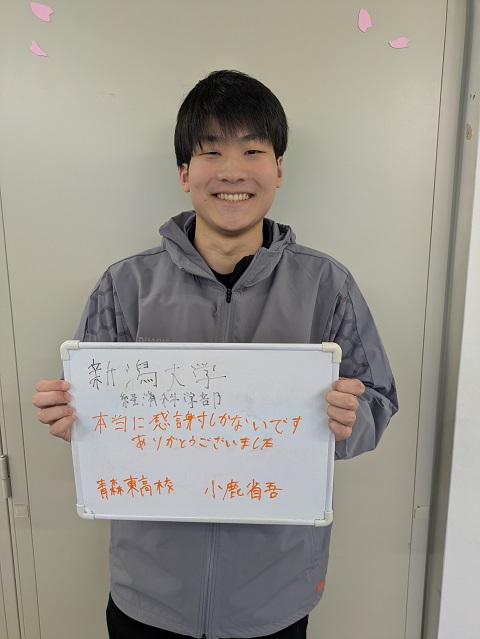 新潟大学
経済科学部
本当に感謝しかないです
ありがとうございました
青森東高校 小鹿省吾